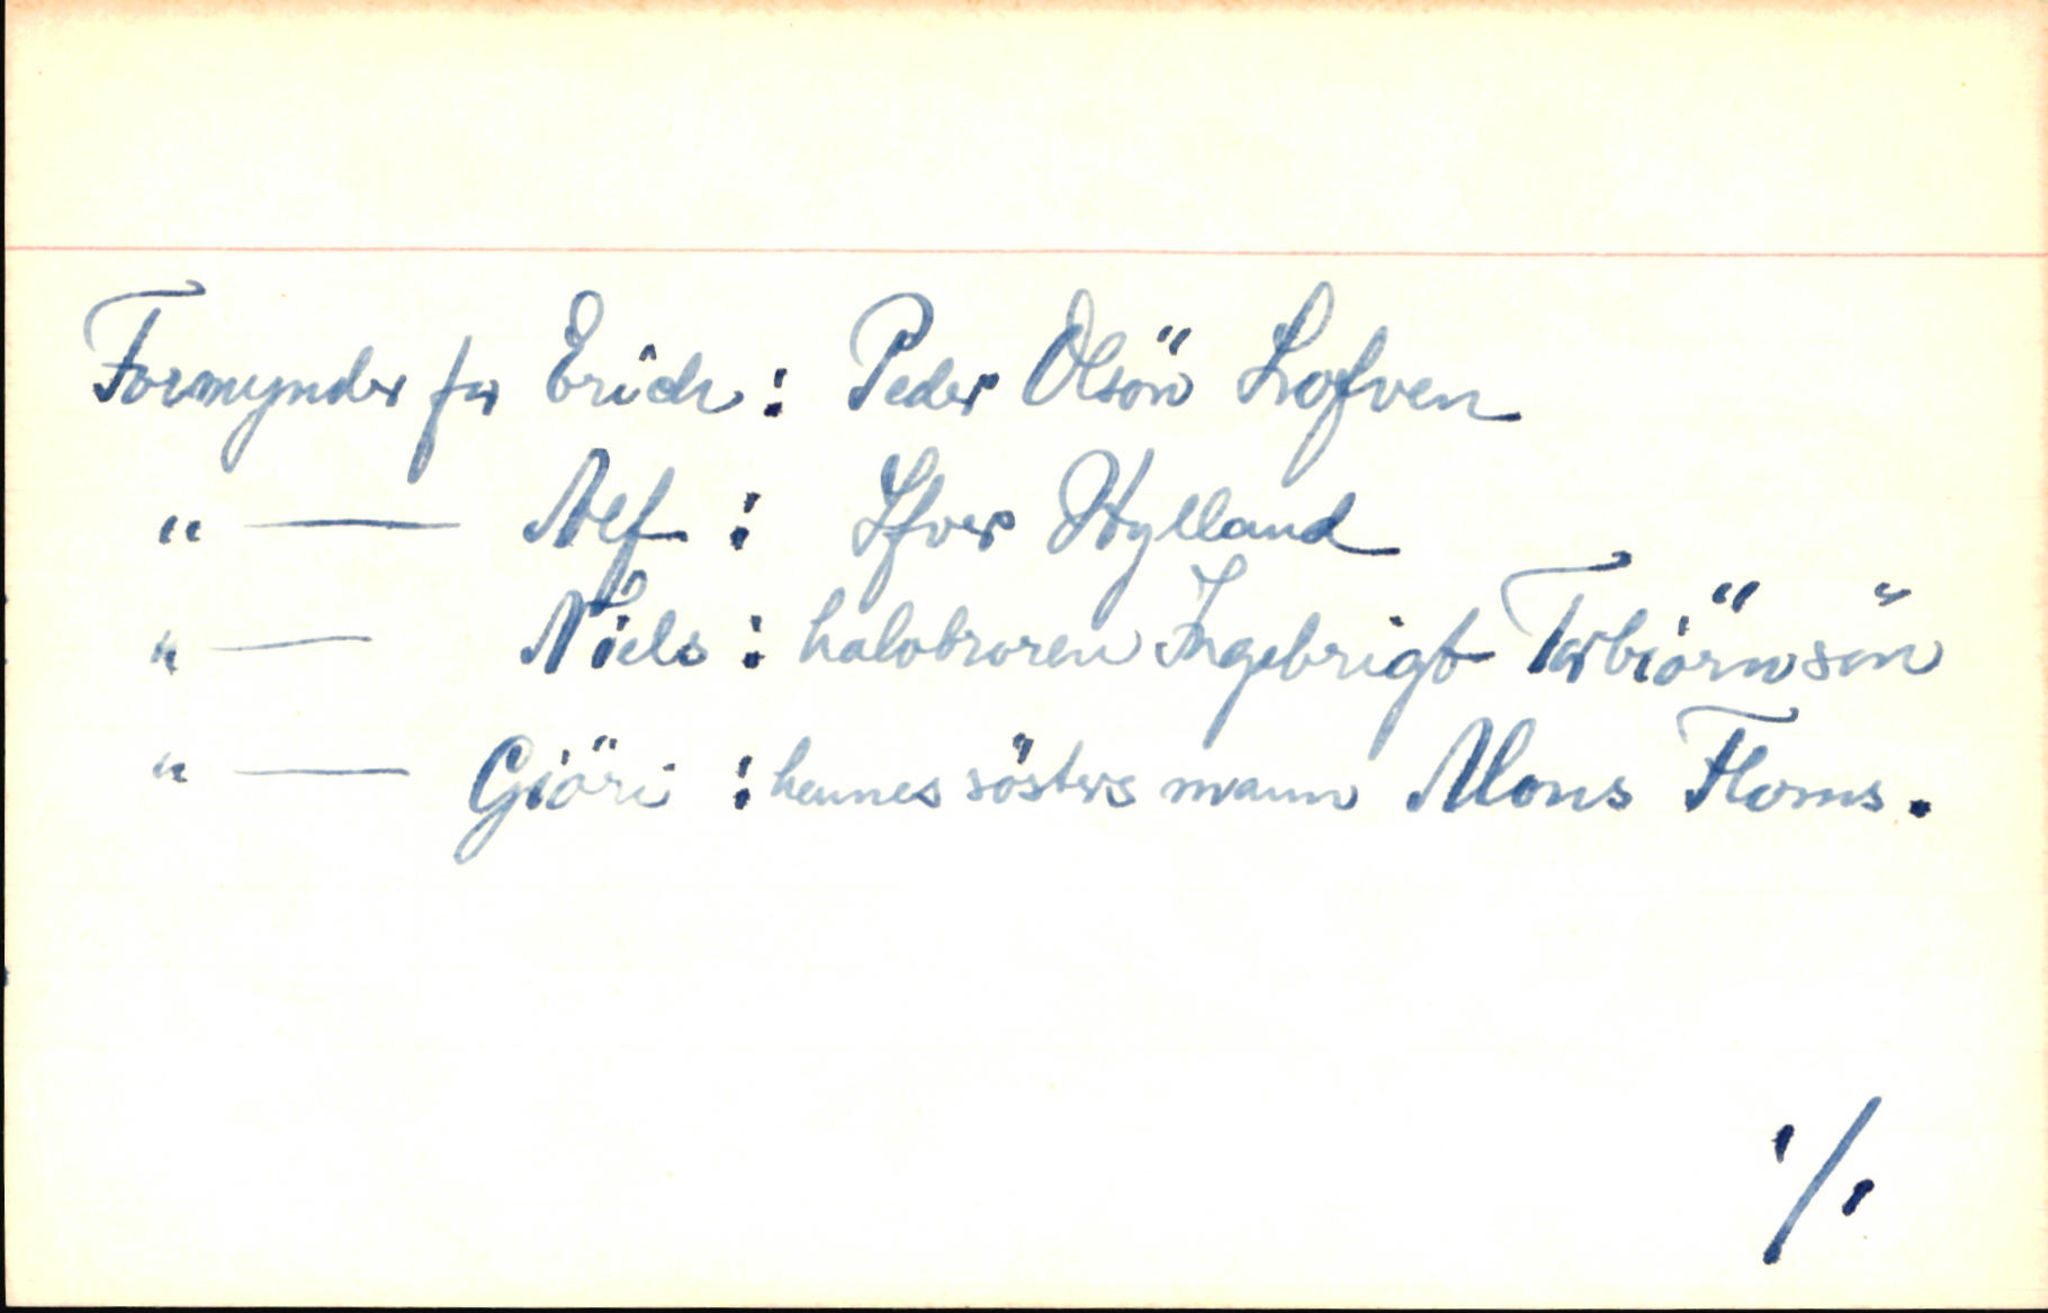 Formynder for Erich: Peder Olsön Lofven
" — Alf : Ifver Hylland
" — Niels : halvbroren Ingebrigt Torbiörnsön
" — Giöri : hennes sösters mann Mons Floms.
./.